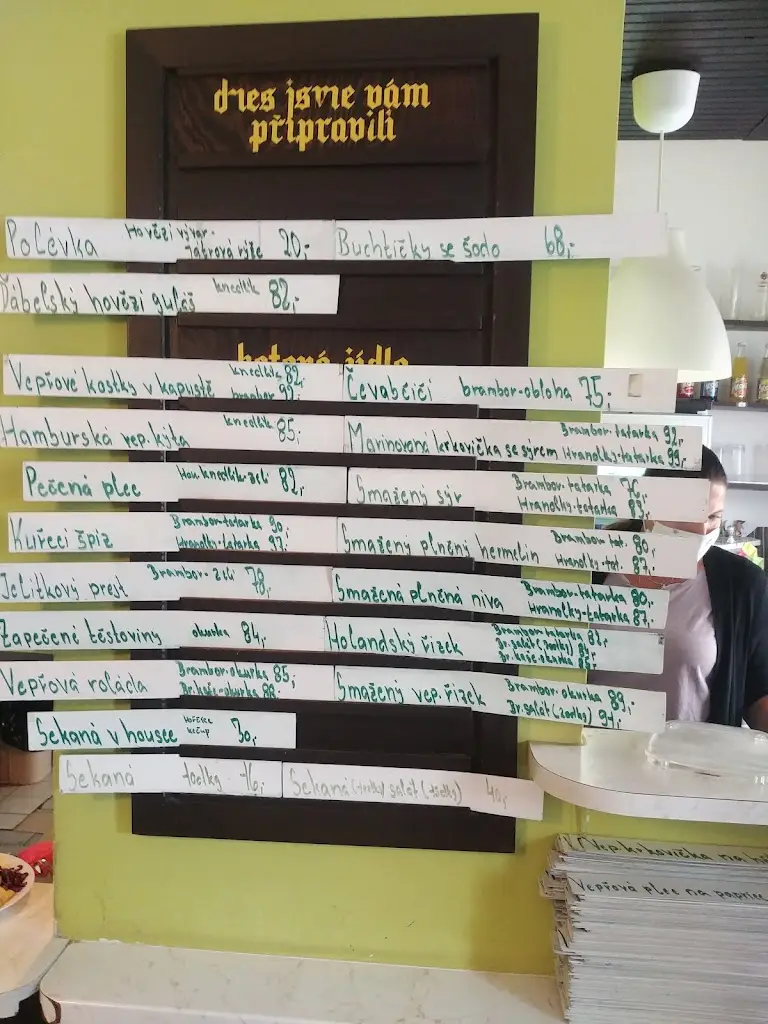 dnes jsme vám
připravili
Polévka Hovězí vývar-
Játrová rýže 20,-
Buchtičky se šodo 68,-
Ďábelský hovězí guláš knedlík 82,-
hotová jídla
Vepřové kostky v kapustě knedlík 82,-
brambor 92,-
Čevabčiči brambor-obloha 75,-
Hamburská vep. kýta knedlík 85,-
Marinovaná krkovička se sýrem Brambor-tatarka 92,-
Hranolky-tatarka 99,-
Pečená plec Hou.knedlík-zelí 82,-
Smažený sýr Brambor-tatarka 76,-
Hranolky-tatarka 83,-
Kuřecí špíz Brambor-tatarka 90,-
Hranolky-tatarka 97,-
Smažený plněný hermelín Brambor-tat. 80,-
Hranolky-tat. 87,-
Jelítkový prejt Brambor-zelí 78,-
Smažená plněná niva Brambor-tatarka 80,-
Hranolky-tatarka 87,-
Zapečené těstoviny okurka 84,-
Holandský řízek Brambor-tatarka 82,-
Br.salát (100tky)
Br.kaše-okurka
Vepřová roláda Brambor-okurka 85,-
Br.kaše-okurka 88,-
Smažený vep. řízek Brambor-okurka 89,-
Br.salát (200tky) 91,-
Sekaná v housce hořčice
kečup 30,-
Sekaná 16,-
Sekaná salát 40,-
Vep. krkovička na
Vepřová plec na paprice